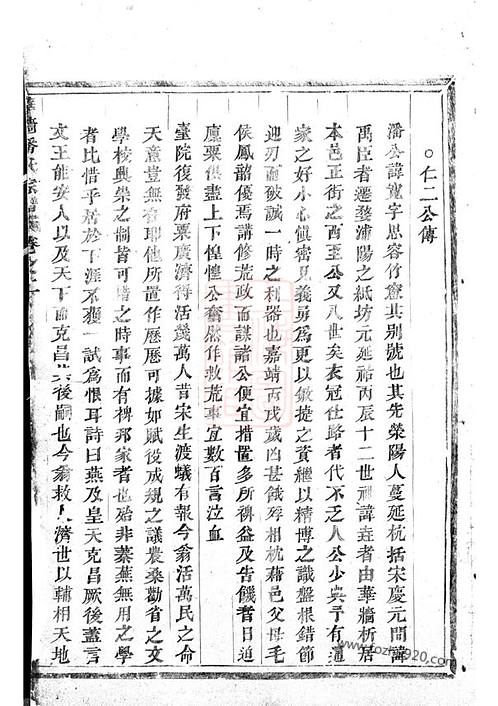 仁二公傳
潘公諱寬字思容竹意其別號也其先滎陽人蔓延杭括宋慶元間諱
禹臣者遷婺浦陽之紙坊元延祐丙辰十二世祖諱垚者由華牆析居
本邑正街之西至公又八世矣衣冠仕路者代不乏人公少與予有通
家之好小心慎密見義勇為更以敏捷之資繼以精博之識盤根錯節
迎刃而破誠一時之利器也嘉靖丙戌歲凶甚餓殍相枕藉邑父母毛
侯鳳韶優焉講修荒政而謀諸公便宜措置多所裨益及告饑者日迫
廩粟俱盡上下惶惶公奮然作救荒事宜數百言泣血
臺院復發府粟廣濟得活幾萬人昔宋生渡蟻有報今翁活萬民之命
天意豈無眷耶他所置作歷歷可據如賦役成規之議農桑勸省之文
學校興崇之制皆可措之時事而有裨邦家者也殆非蓁蕪無用之學
者比惜乎居於下涯不獲一試為恨耳詩曰燕及皇天克昌厥後蓋言
文王能安人以及天下而克昌其後嗣也今翁救人濟世以輔相天地
潘氏宗譜 卷之一
www.fozhu920.com